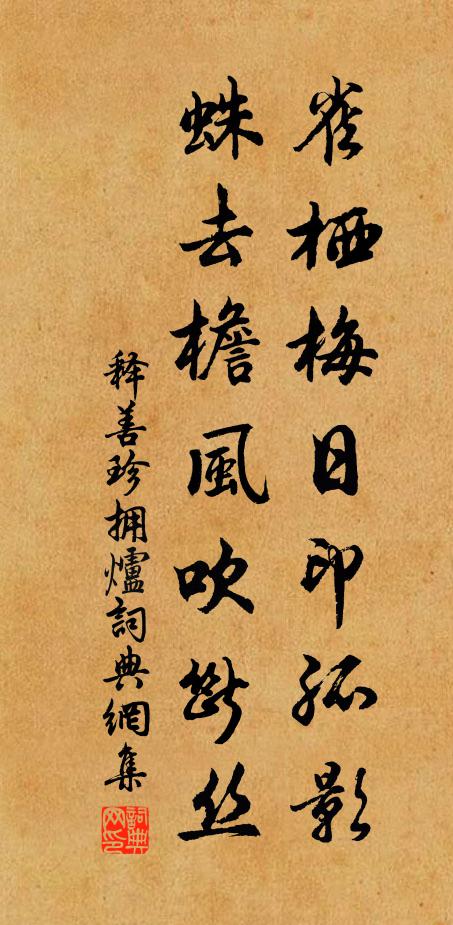 雀栖梅日印孤影
蛛去檐风吹断丝
释善珍拥爐詞典網集
詞典網印